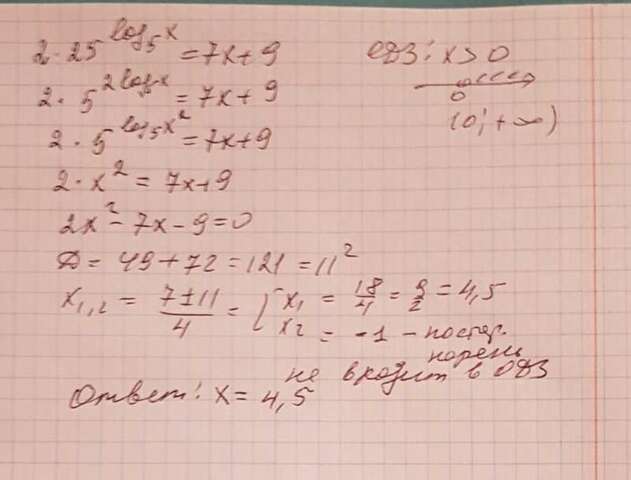 2·25^log₅x = 7x+9
ОДЗ: x>0
2·5^2log₅x = 7x+9
0
2·5^log₅x² = 7x+9
(0;+∞)
2·x² = 7x+9
2x²-7x-9=0
D = 49+72=121=11²
x₁,₂ = 7±11/4 = [x₁ = 18/4 = 9/2 = 4,5
x₂ = -1 - постор.
корень
не входит в ОДЗ
Ответ: x=4,5